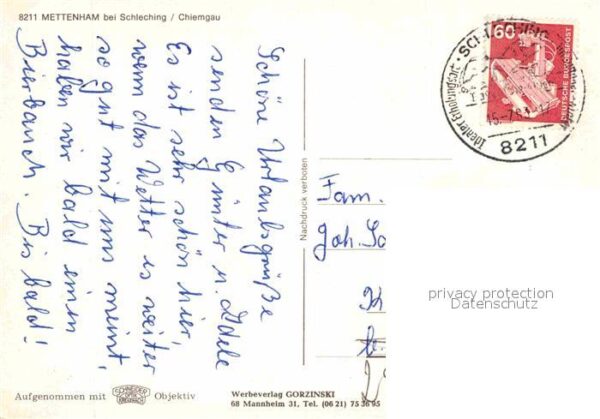 8211 METTENHAM bei Schleching / Chiemgau
Schöne Urlaubsgrüße
senden Günter u. Adele
Es ist sehr schön hier,
wenn das Wetter es weiter
so gut mit uns meint,
haben wir bald einen
Bierbauch. Bis bald!
Nachdruck verboten
Fam.
Joh.
60
DEUTSCHE BUNDESPOST
SCHLECHING
8211
privacy protection
Datenschutz
Aufgenommen mit
SCHNEIDER
KREUZNACH
Objektiv
Werbeverlag GORZINSKI
68 Mannheim 31, Tel. (06 21) 75 36 95